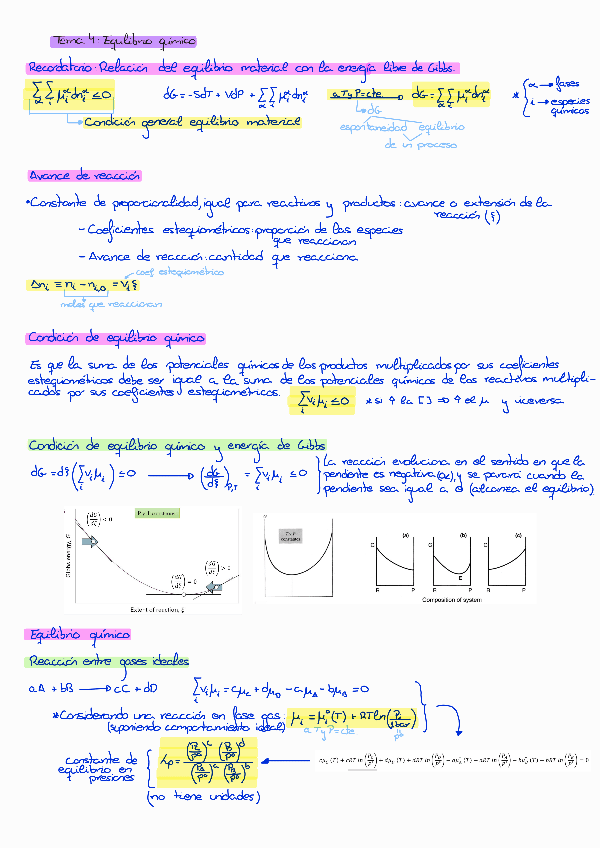 Tema 4: Equilibrio químico
Recordatorio: Relación del equilibrio material con la energía libre de Gibbs.
∑α ∑i μiα dniα ≤ 0
dG = -SdT + VdP + ∑α ∑i μiα dniα
a T y P = cte
dG = ∑α ∑i μiα dniα
* α → fases
i → especies químicas
Condición general equilibrio material
dG
espontaneidad equilibrio
de un proceso
Avance de reacción
• Constante de proporcionalidad, igual para reactivos y productos: avance o extensión de la
reacción (ξ)
- Coeficientes estequiométricos: proporción de las especies
que reaccionan
- Avance de reacción: cantidad que reacciona
coef estequiométrico
Δni ≡ ni - ni,0 = νi ξ
moles que reaccionan
Condición de equilibrio químico
Es que la suma de los potenciales químicos de los productos multiplicados por sus coeficientes
estequiométricos debe ser igual a la suma de los potenciales químicos de los reactivos multipli-
cados por sus coeficientes estequiométricos.
∑i νi μi ≤ 0
* si ↑ la [ ] ⇒ ↑ el μ y viceversa
Condición de equilibrio químico y energía de Gibbs
dG = dξ (∑i νi μi) ≤ 0 → (dG/dξ)P,T = ∑i νi μi ≤ 0
La reacción evoluciona en el sentido en que la
pendiente es negativa (<0), y se parará cuando la
pendiente sea igual a 0 (alcanza el equilibrio)
(dG/dξ) < 0
(dG/dξ) > 0
(dG/dξ) = 0
Extent of reaction, ξ
constantes
(a)
(b)
(c)
G
G
G
E
R
P
R
P
R
P
Composition of system
Equilibrio químico
Reacción entre gases ideales
aA + bB → cC + dD
∑i νi μi = cμC + dμD - aμA - bμB = 0
* Considerando una reacción en fase gas:
(suponiendo comportamiento ideal)
μi = μi°(T) + RT ln(Pi/1bar)
a T y P = cte
P°
Constante de
equilibrio en
presiones
Kp = (PC/P°)^c (PD/P°)^d / (PA/P°)^a (PB/P°)^b
(no tiene unidades)